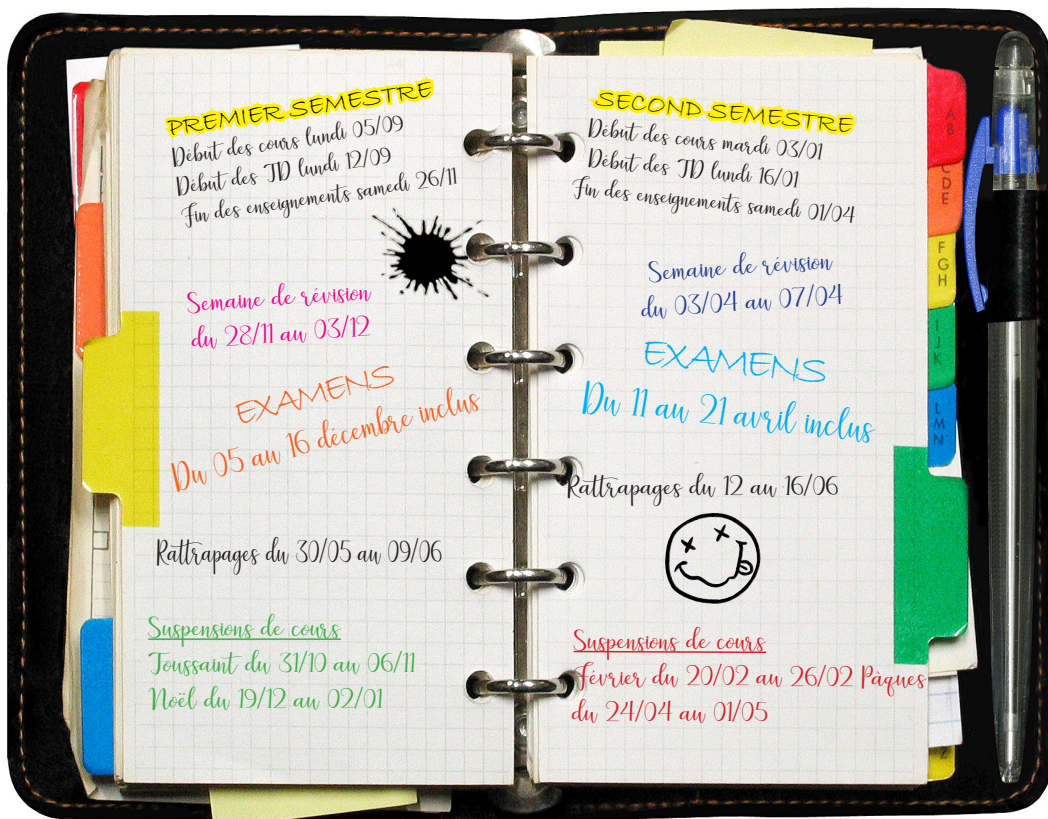 PREMIER SEMESTRE
Début des cours lundi 05/09
Début des TD lundi 12/09
Fin des enseignements samedi 26/11
Semaine de révision
du 28/11 au 03/12
EXAMENS
Du 05 au 16 décembre inclus
Rattrapages du 30/05 au 09/06
Suspensions de cours
Toussaint du 31/10 au 06/11
Noël du 19/12 au 02/01
SECOND SEMESTRE
Début des cours mardi 03/01
Début des TD lundi 16/01
Fin des enseignements samedi 01/04
Semaine de révision
du 03/04 au 07/04
EXAMENS
Du 11 au 21 avril inclus
Rattrapages du 12 au 16/06
Suspensions de cours
Février du 20/02 au 26/02 Pâques
du 24/04 au 01/05
A
B
C
D
E
F
G
H
I
J
K
L
M
N
Z